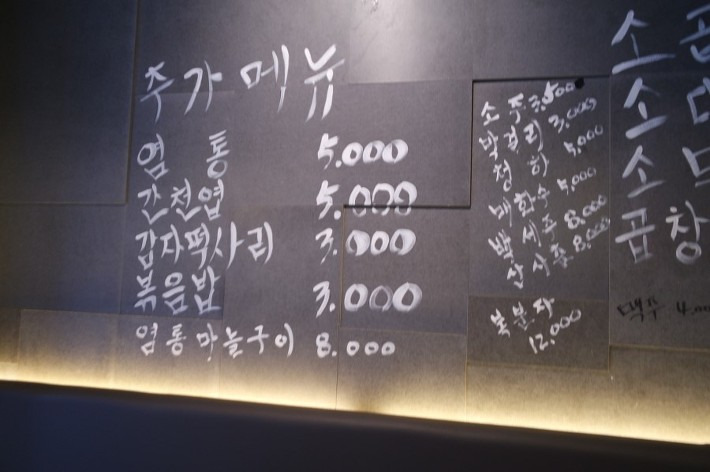 추가메뉴
염통 5.000
간천엽 5.000
감자떡사리 3.000
볶음밥 3.000
염통마늘구이 8.000
소주 3,500
막걸리 3,000
청하 5,000
매화수 5,000
백세주 8,000
산사춘 8,000
복분자
12,000
소곱
소대
소
곱창
맥주 4.000